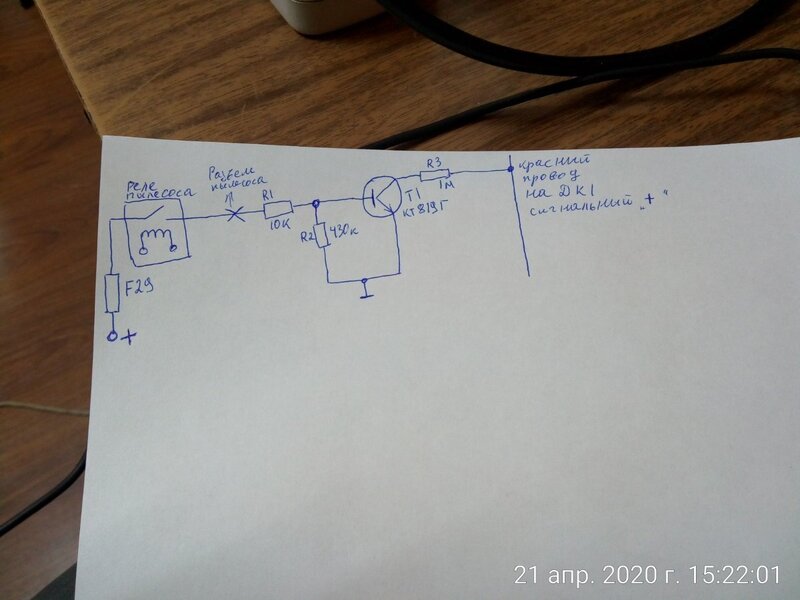 реле
пылесоса
Разъем
пылесоса
R1
10К
R2
430к
T1
КТ819Г
R3
1м
F29
+
красный
провод
на ДК1
сигнальный „+“
21 апр. 2020 г. 15:22:01